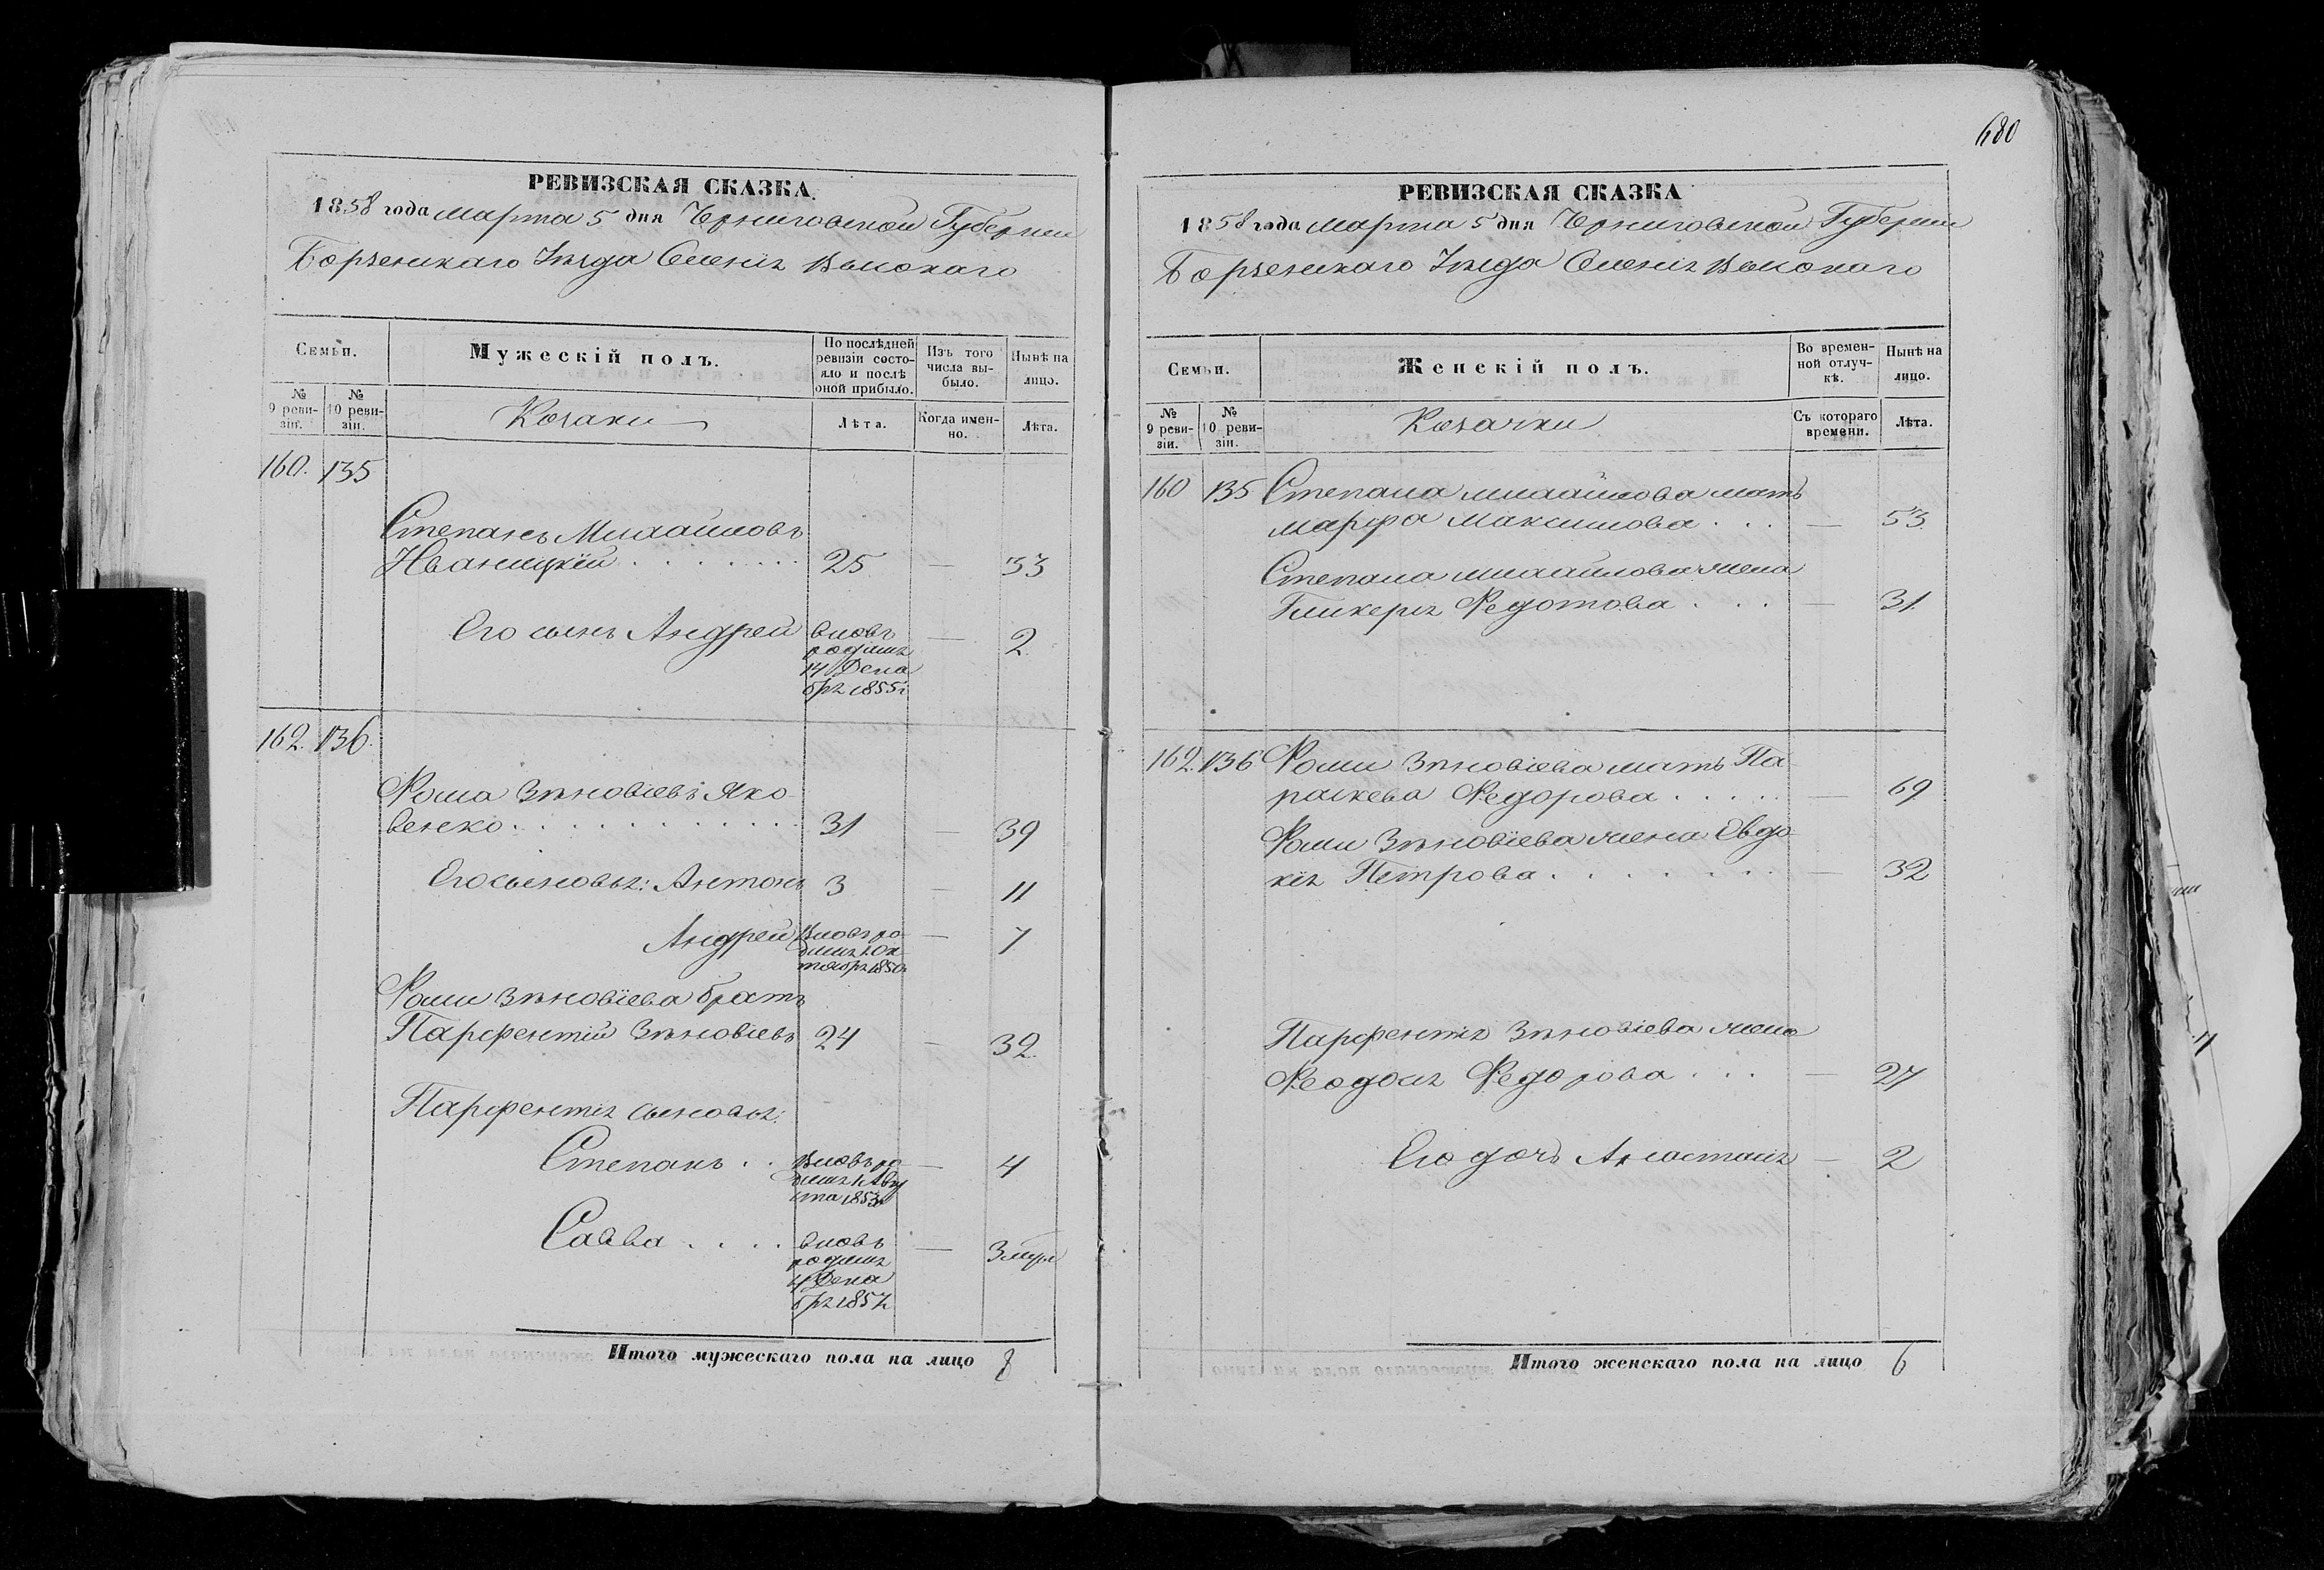 РЕВИЗСКАЯ СКАЗКА.
1858 года Марта 5 дня Черниговской Губернии
Борзенскаго Уѣзда Селенія Высокаго
Семьи.
Мужескій полъ.
По послѣдней ревизіи состояло и послѣ оной прибыло.
Изъ того числа выбыло.
Нынѣ на лицо.
№ 9 ревизіи.
№ 10 ревизіи.
Козаки
Лѣта.
Когда именно.
Лѣта.
160. 135
Степанъ Михайловъ
Иваницкій . . . . . . . . 25 — 33
Его сынъ Андрей вновь — 2.
родился
14 Дека
бря 1855 г.
162. 136.
Фома Зѣновіевъ Яко
венко . . . . . . . . . . . . 31 — 39
Его сыновья: Антонъ 3 — 11
Андрей Вновь ро — 7
дился 1 Ок
тября 1850
Фомы Зѣновіева братъ
Парфентій Зѣновіевъ 24 — 32.
Парфентія сыновья:
Степанъ . . Вновь ро — 4
дился 1 Авгу
ста 1853
Савва . . . . вновь — 3 мѣся
родился
4 Дека
бря 1857
Итого мужескаго пола на лицо 8
680
РЕВИЗСКАЯ СКАЗКА
1858 года Марта 5 дня Черниговской Губернии
Борзенскаго Уѣзда Селенія Высокаго
Семьи.
Женскій полъ.
Во временной отлучкѣ.
Нынѣ на лицо.
№ 9 ревизіи.
№ 10 ревизіи.
Козачки
Съ котораго времени.
Лѣта.
160 135 Степана Михайлова мать
Марфа Максимова . . . — 53.
Степана Михайлова жена
Гликерія Федотова . . . — 31.
162. 136. Фомы Зѣновіева мать Па
раскева Федорова . . . . . — 69
Фомы Зѣновіева жена Евдо
кія Петрова . . . . . . . — 32
Парфентія Зѣновіева жена
Феодосія Федорова . . . — 27
Его дочь Анастасія — 2
Итого женскаго пола на лицо 6